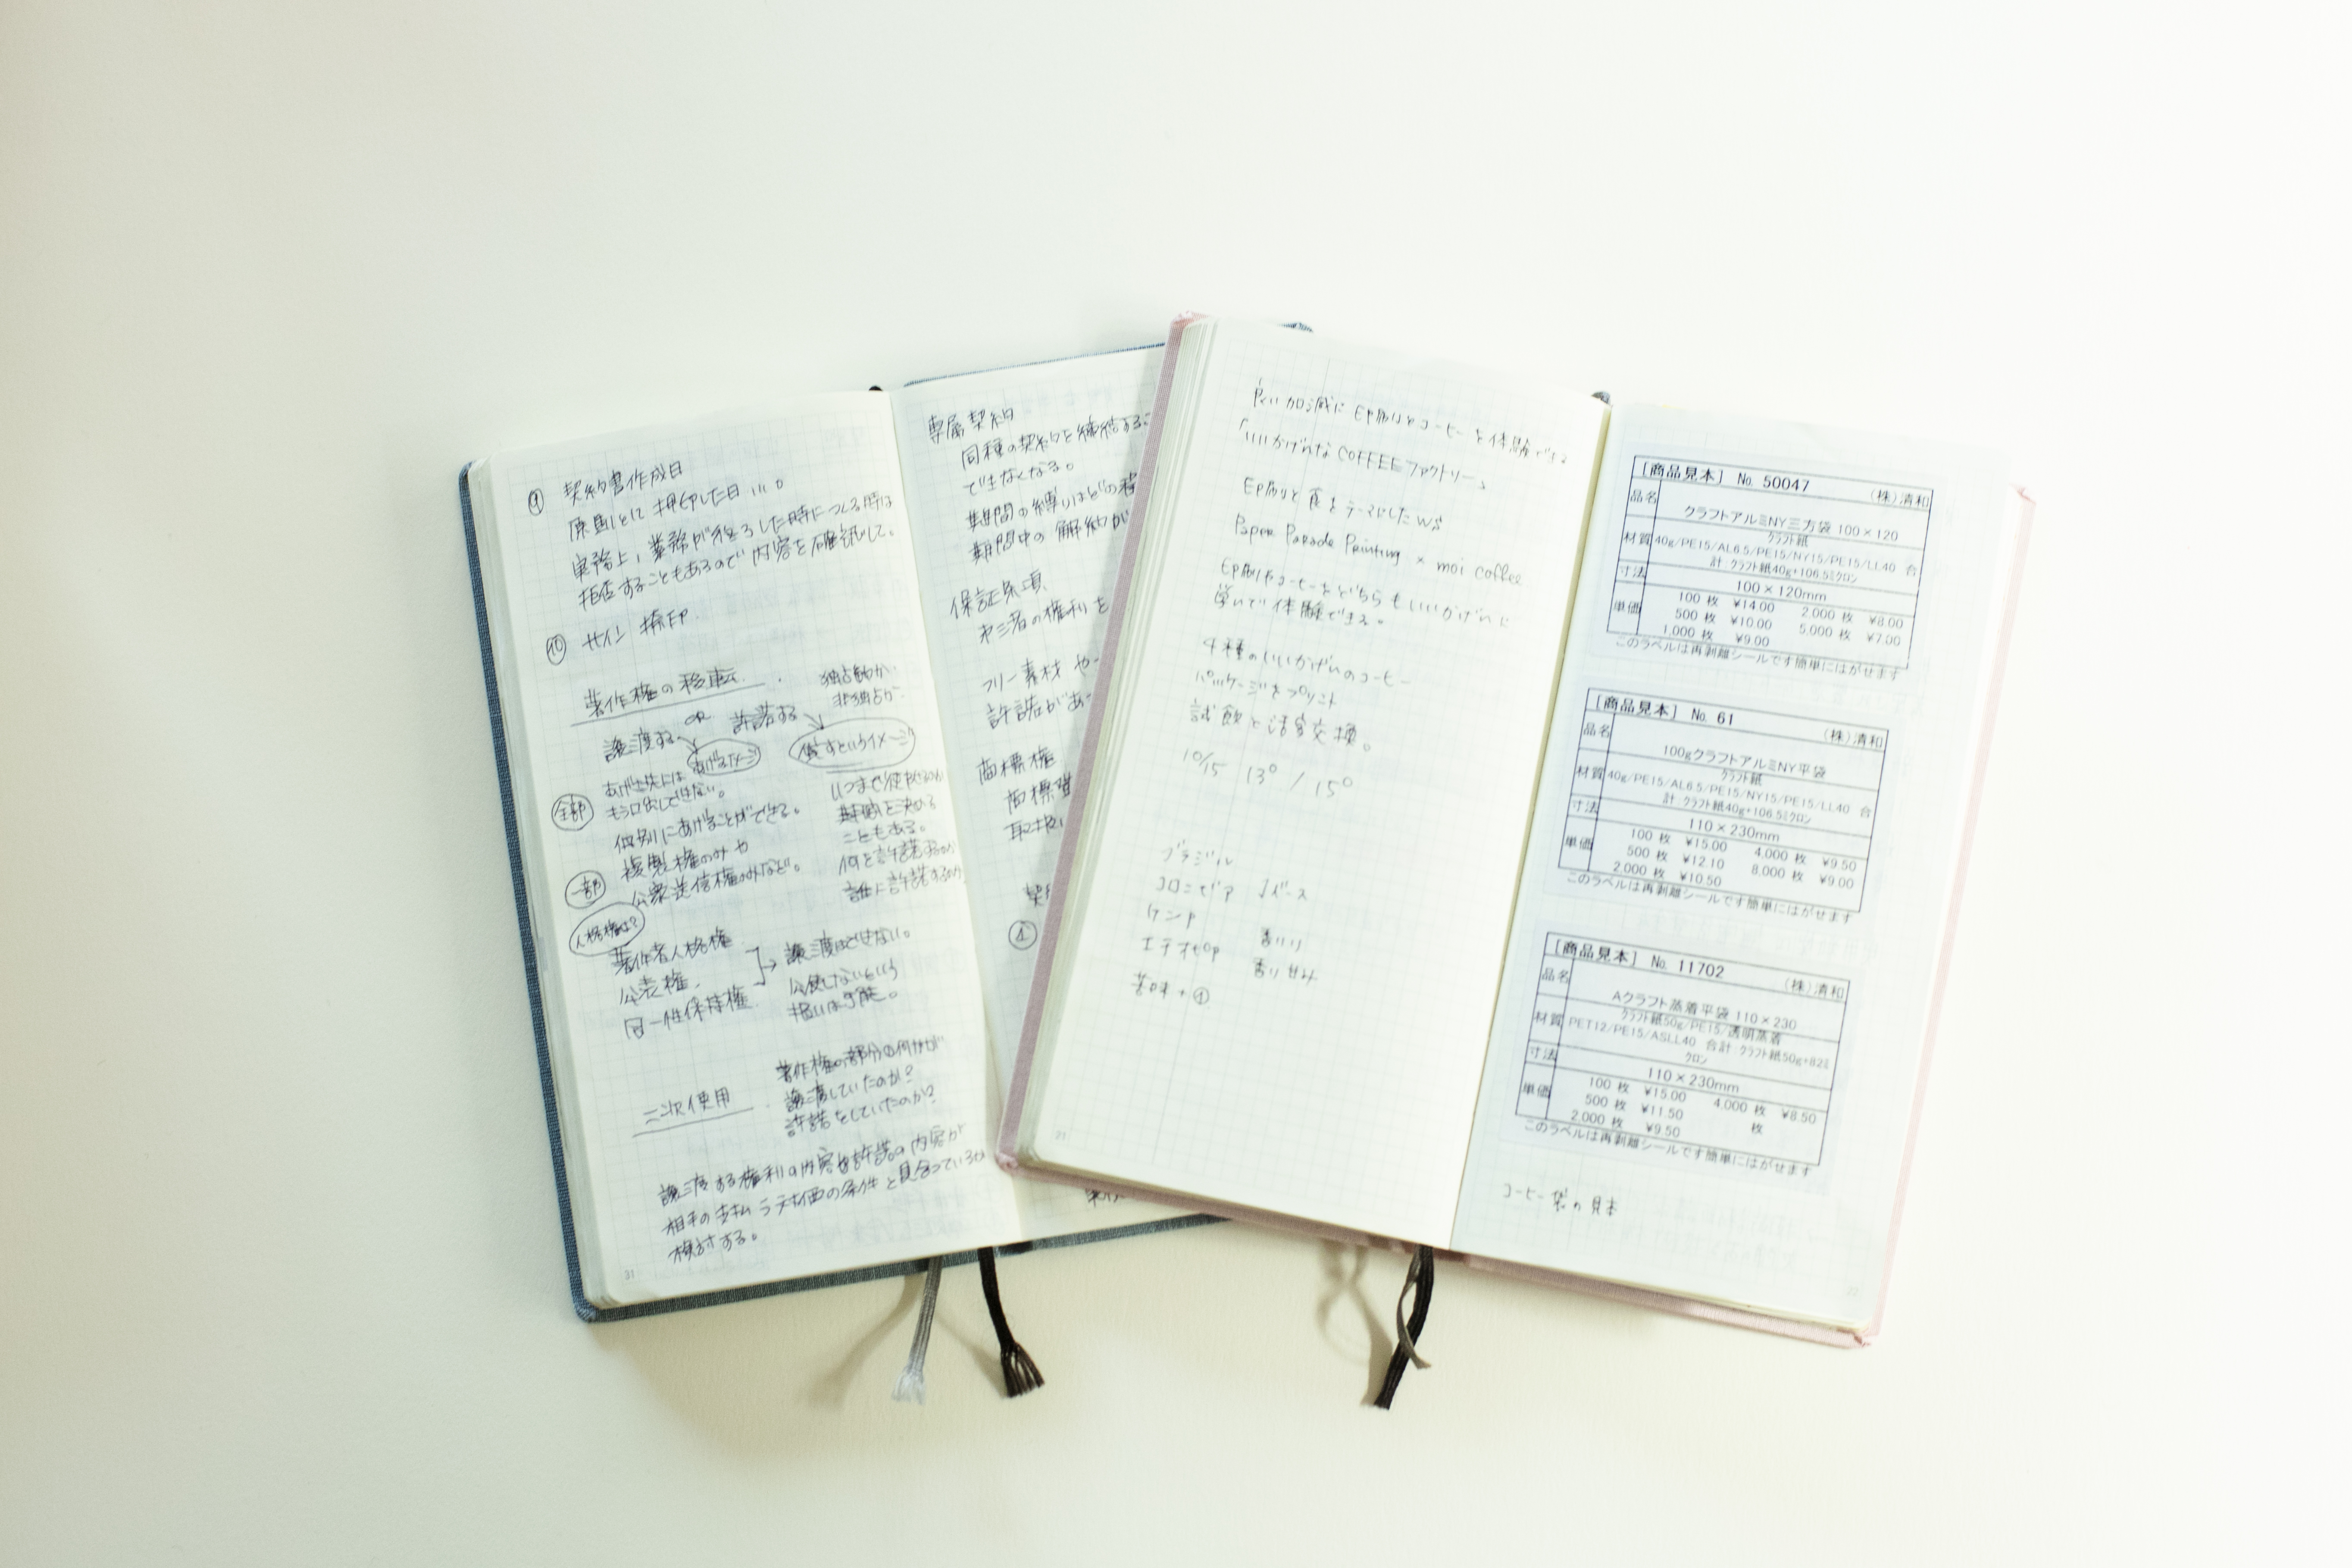 ⑨ 契約書作成日
原則として押印した日…。
実務上、業務が終了した時につくる時は
拒否することもあるので内容を確認して。
⑩ サイン 捺印.
著作権の移転.
独占的か.
非独占か.
譲渡する OR 許諾する
あげるイメージ
貸すというイメージ
あげた先には
もう口出しできない。
全部
個別にあげることができる。
一部
複製権のみや
公衆送信権のみなど。
いつまで使やせるのか
期間を決める
こともある。
何を許諾するのか
誰に許諾するのか
人格権は?
著作者人格権
公表権.
同一性保持権.
譲渡はできない。
公使しないという
扱いは可能。
二次使用
著作権の部分の何かが
譲渡していたのか?
許諾をしていたのか?
譲渡する権利の内容や許諾の内容が
相手の支払う対価の条件と見合っているか
検討する。
31
専属契約
同種の契約を締結するこ
できなくなる。
期間の縛りはどの程
期間中の解約が
保証条項
第三者の権利を
フリー素材や
許諾があ
商標権
商標登
取扱い
契
①
良い加減にEP刷りとコーヒーを体験できる
「いいかげんなCOFFEEファクトリー」
EP刷りと食をテーマにしたWS
Paper Parade Printing × moi coffee
EP刷りやコーヒーをどちらもいいかげんに
学んで体験できる。
4種のいいかげんのコーヒー
パッケージをプリント
試飲と活容交換。
10/15 13⁰ / 15⁰
ブラジル
コロンビア ベース
ケニア
エチオピア 香り
香り 甘み
苦味 +①
21
[商品見本] No. 50047 (株)清和
品名 クラフトアルミNY三方袋 100×120
材質 クラフト紙
40g/PE15/AL6.5/PE15/NY15/PE15/LL40 合
計 クラフト紙40g+106.5ミクロン
寸法 100×120mm
単価 100 枚 ¥14.00 2,000 枚 ¥8.00
500 枚 ¥10.00 5,000 枚 ¥7.00
1,000 枚 ¥9.00
このラベルは再剥離シールです簡単にはがせます
[商品見本] No. 61 (株)清和
品名 100gクラフトアルミNY平袋
材質 クラフト紙
40g/PE15/AL6.5/PE15/NY15/PE15/LL40 合
計 クラフト紙40g+106.5ミクロン
寸法 110×230mm
単価 100 枚 ¥15.00 4,000 枚 ¥9.50
500 枚 ¥12.10 8,000 枚 ¥9.00
2,000 枚 ¥10.50
このラベルは再剥離シールです簡単にはがせます
[商品見本] No. 11702 (株)清和
品名 Aクラフト蒸着平袋 110×230
材質 クラフト紙50g/PE15/透明蒸着
PET12/PE15/ASLL40 合計 クラフト紙50g+82ミ
クロン
寸法 110×230mm
単価 100 枚 ¥15.00 4,000 枚 ¥8.50
500 枚 ¥11.50 枚
2,000 枚 ¥9.50
このラベルは再剥離シールです簡単にはがせます
コーヒー袋の見本
22